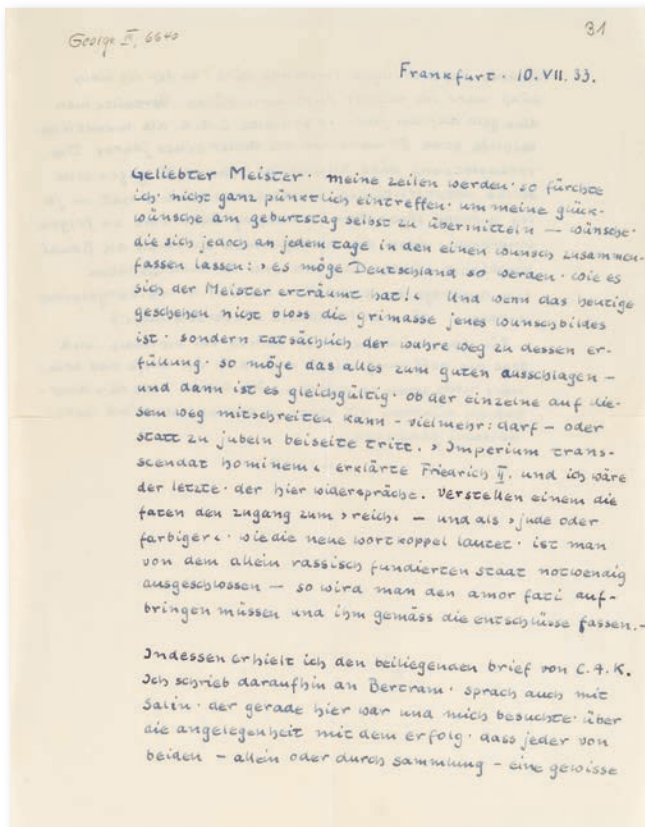 George III, 6640
31
Frankfurt · 10. VII. 33.
Geliebter Meister · meine zeilen werden · so fürchte
ich · nicht ganz pünktlich eintreffen · um meine glück-
wünsche am geburtstag selbst zu übermitteln — wünsche ·
die sich jedoch an jedem tage in den einen wunsch zusammen-
fassen lassen: › es möge Deutschland so werden · wie es
sich der Meister erträumt hat! ‹ Und wenn das heutige
geschehen nicht bloss die grimasse jenes wunschbildes
ist · sondern tatsächlich der wahre weg zu dessen er-
füllung · so möge das alles zum guten ausschlagen –
und dann ist es gleichgültig · ob der einzelne auf die-
sem weg mitschreiten kann – vielmehr: darf – oder
statt zu jubeln beiseite tritt. › Imperium trans-
scendat hominem ‹ erklärte Friedrich II. und ich wäre
der letzte · der hier widerspräche. Verstellen einem die
faten den zugang zum › reich ‹ – und als › jude oder
farbiger ‹ · wie die neue wortkoppel lautet · ist man
von dem allein rassisch fundierten staat notwendig
ausgeschlossen — so wird man den amor fati auf-
bringen müssen und ihm gemäss die entschlüsse fassen. –
Indessen erhielt ich den beiliegenden brief von C.A.K.
Ich schrieb daraufhin an Bertram · sprach auch mit
Salin · der gerade hier war und mich besuchte · über
die angelegenheit mit dem erfolg · dass jeder von
beiden – allein oder durch sammlung – eine gewisse